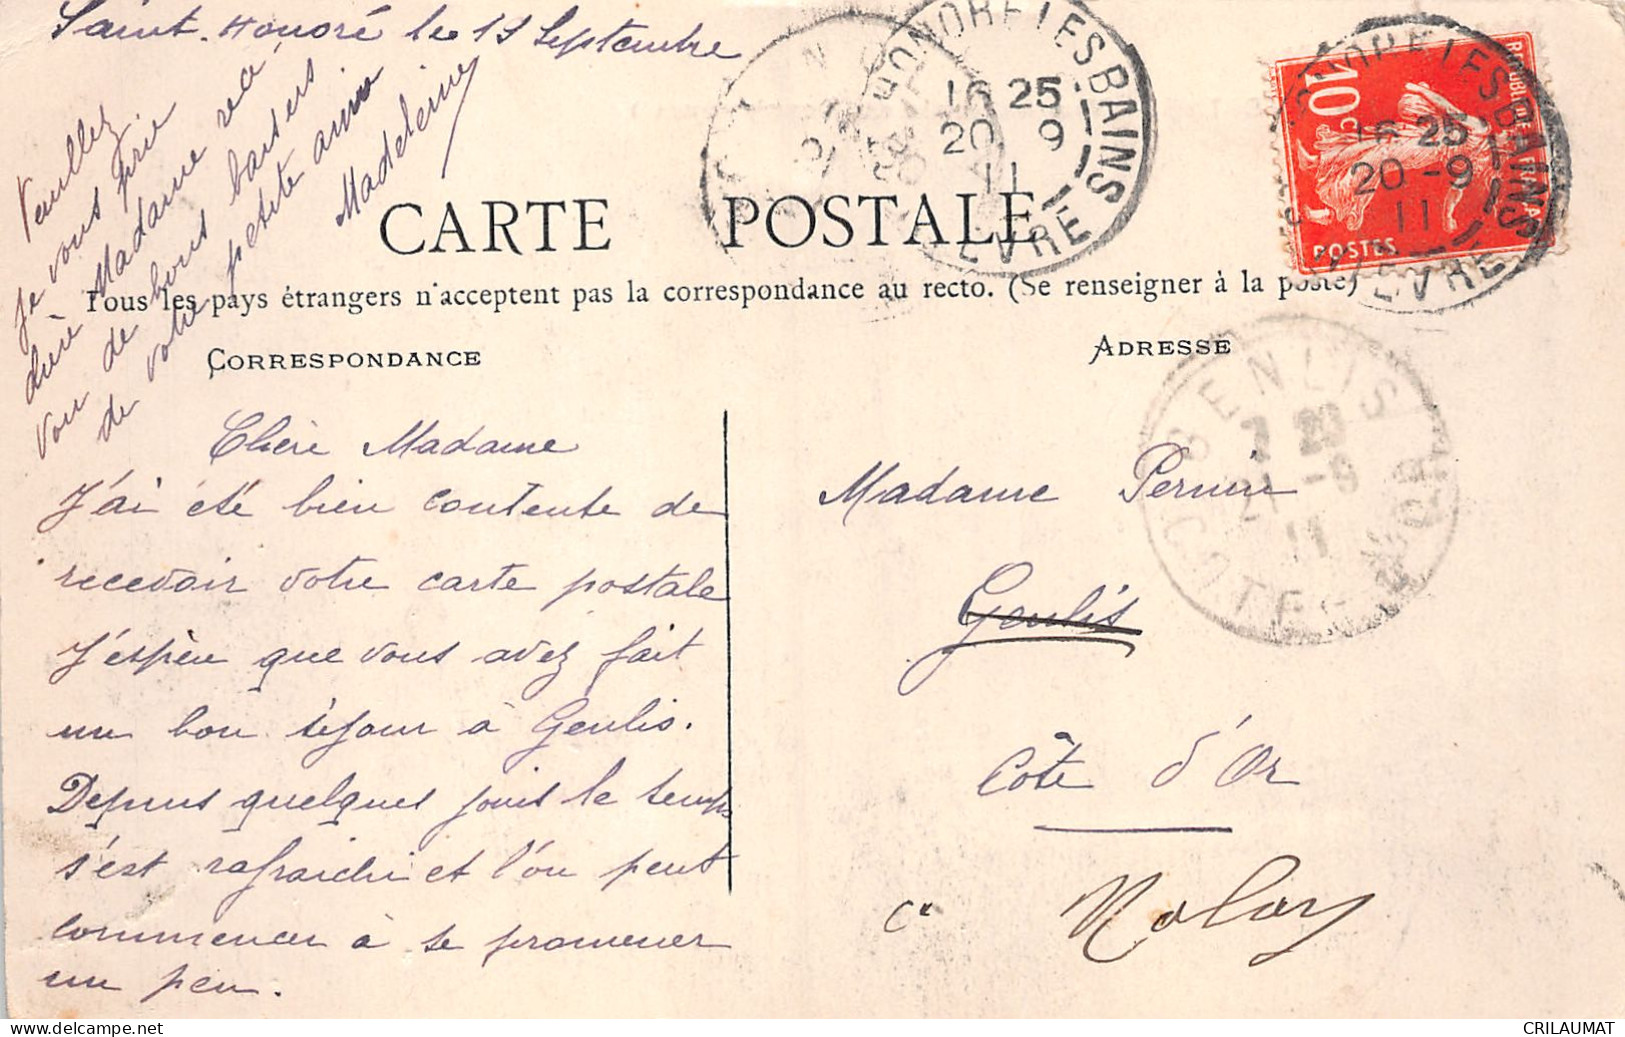 Saint-Honoré le 19 Septembre
CARTE POSTALE
Tous les pays étrangers n'acceptent pas la correspondance au recto. (Se renseigner à la poste)
CORRESPONDANCE
ADRESSE
Chère Madame
J'ai été bien contente de
recevoir votre carte postale
J'espère que vous avez fait
un bon séjour à Genlis.
Depuis quelques jours le temps
s'est rafraichi et l'on peut
commencer à se promener
un peu.
Veuillez
je vous prie
chère Madame rece
voir de bons baisers
de votre petite amie
Madeleine
Madame Perrin
Genlis
Côte d'Or
Nolay
HONORE LES BAINS
16 25
20 9
11
NIEVRE
10 c
POSTES
HONORE LES BAINS
16 25
20 -9
11
NIEVRE
GENLIS
7 20
21 -9
11
COTE D'OR
CRILAUMAT
www.delcampe.net